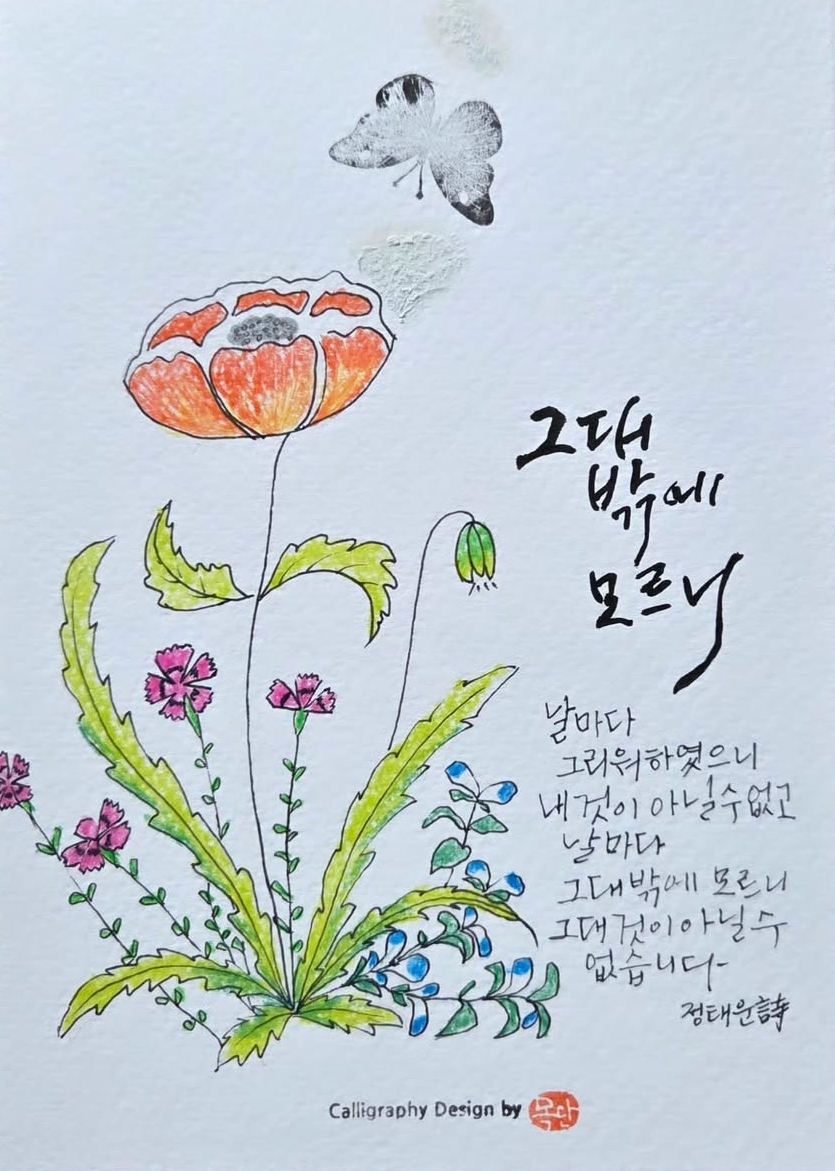 그대
밖에
모르니
날마다
그리워하였으니
내것이 아닐수없고
날마다
그대밖에 모르니
그대것이아닐수
없습니다
정태운詩
Calligraphy Design by 목단